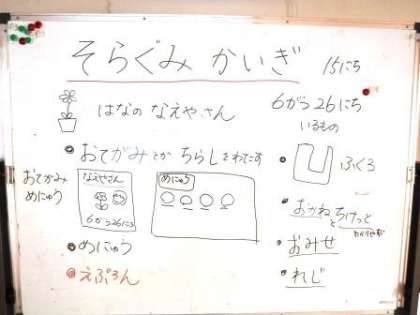 そらぐみ かいぎ 15にち
はなの なえやさん
6がつ26にち
いるもの
おてがみとか ちらしをわたす
ふくろ
おてがみ
めにゅう
なえやさん
6がつ26にち
めにゅう
おかねとちけっと
めにゅう
おみせ
えぷろん
れじ